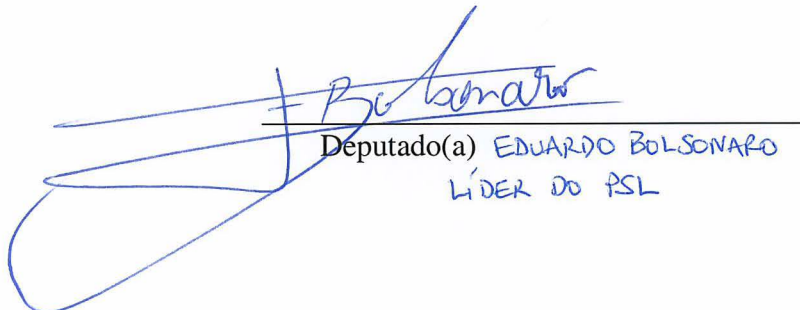 Bolsonaro
Deputado(a) EDUARDO BOLSONARO
LÍDER DO PSL